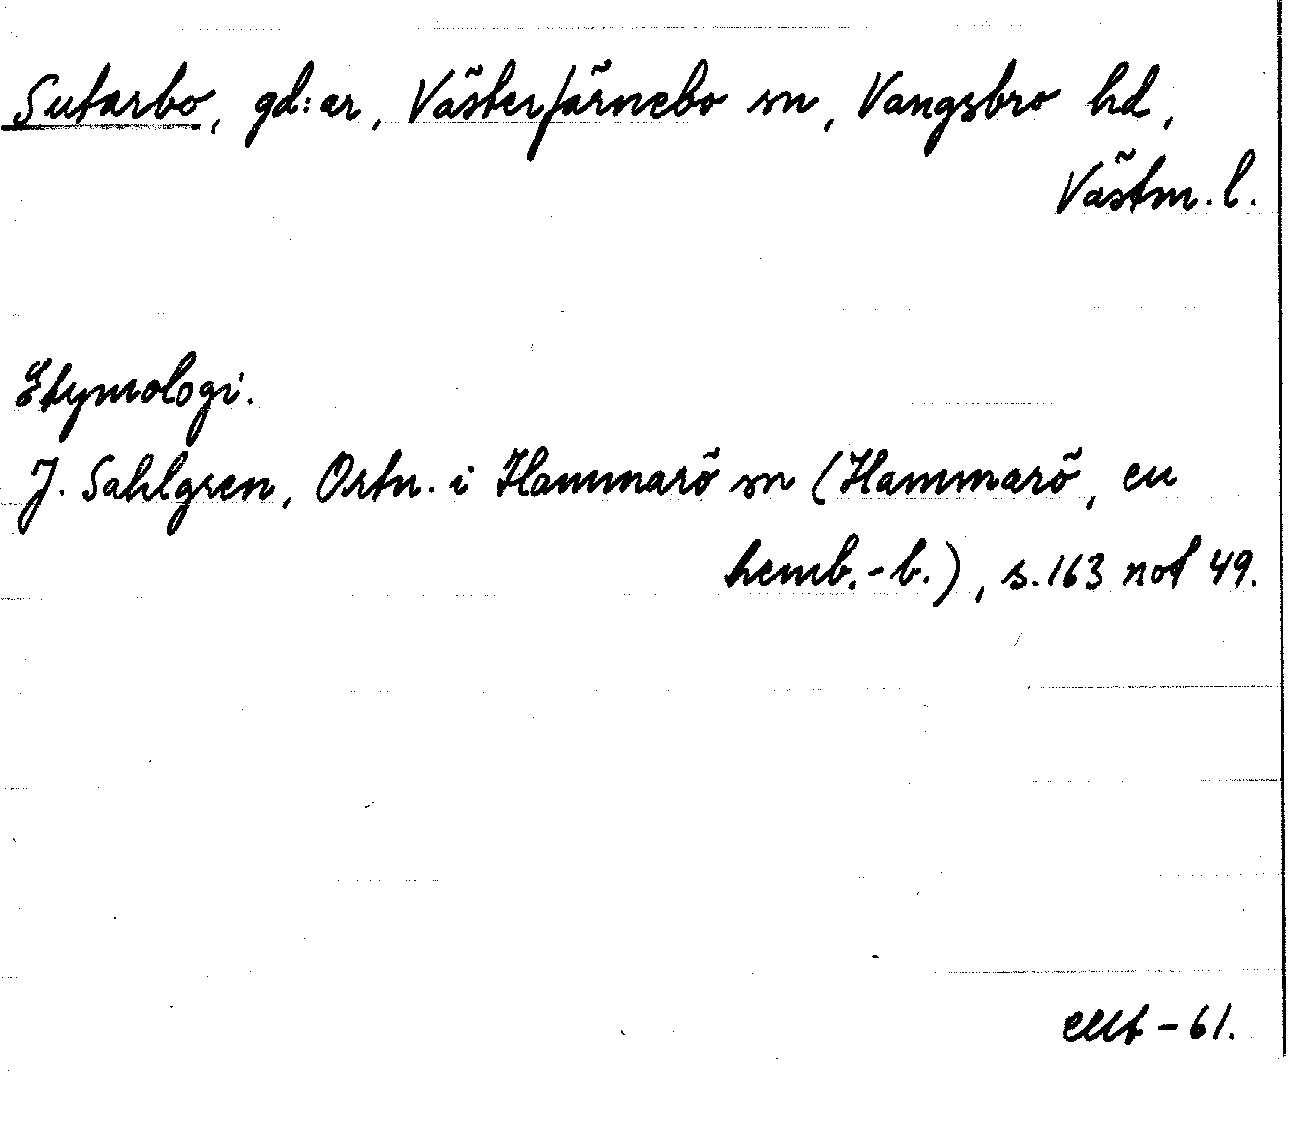 Sutarbo, gd:ar, Västerfärnebo sn, Vangsbro hd,
Västm. l.
Etymologi.
J. Sahlgren, Ortn. i Hammarö sn (Hammarö, en
hemb.-b.), s. 163 not 49.
-61.